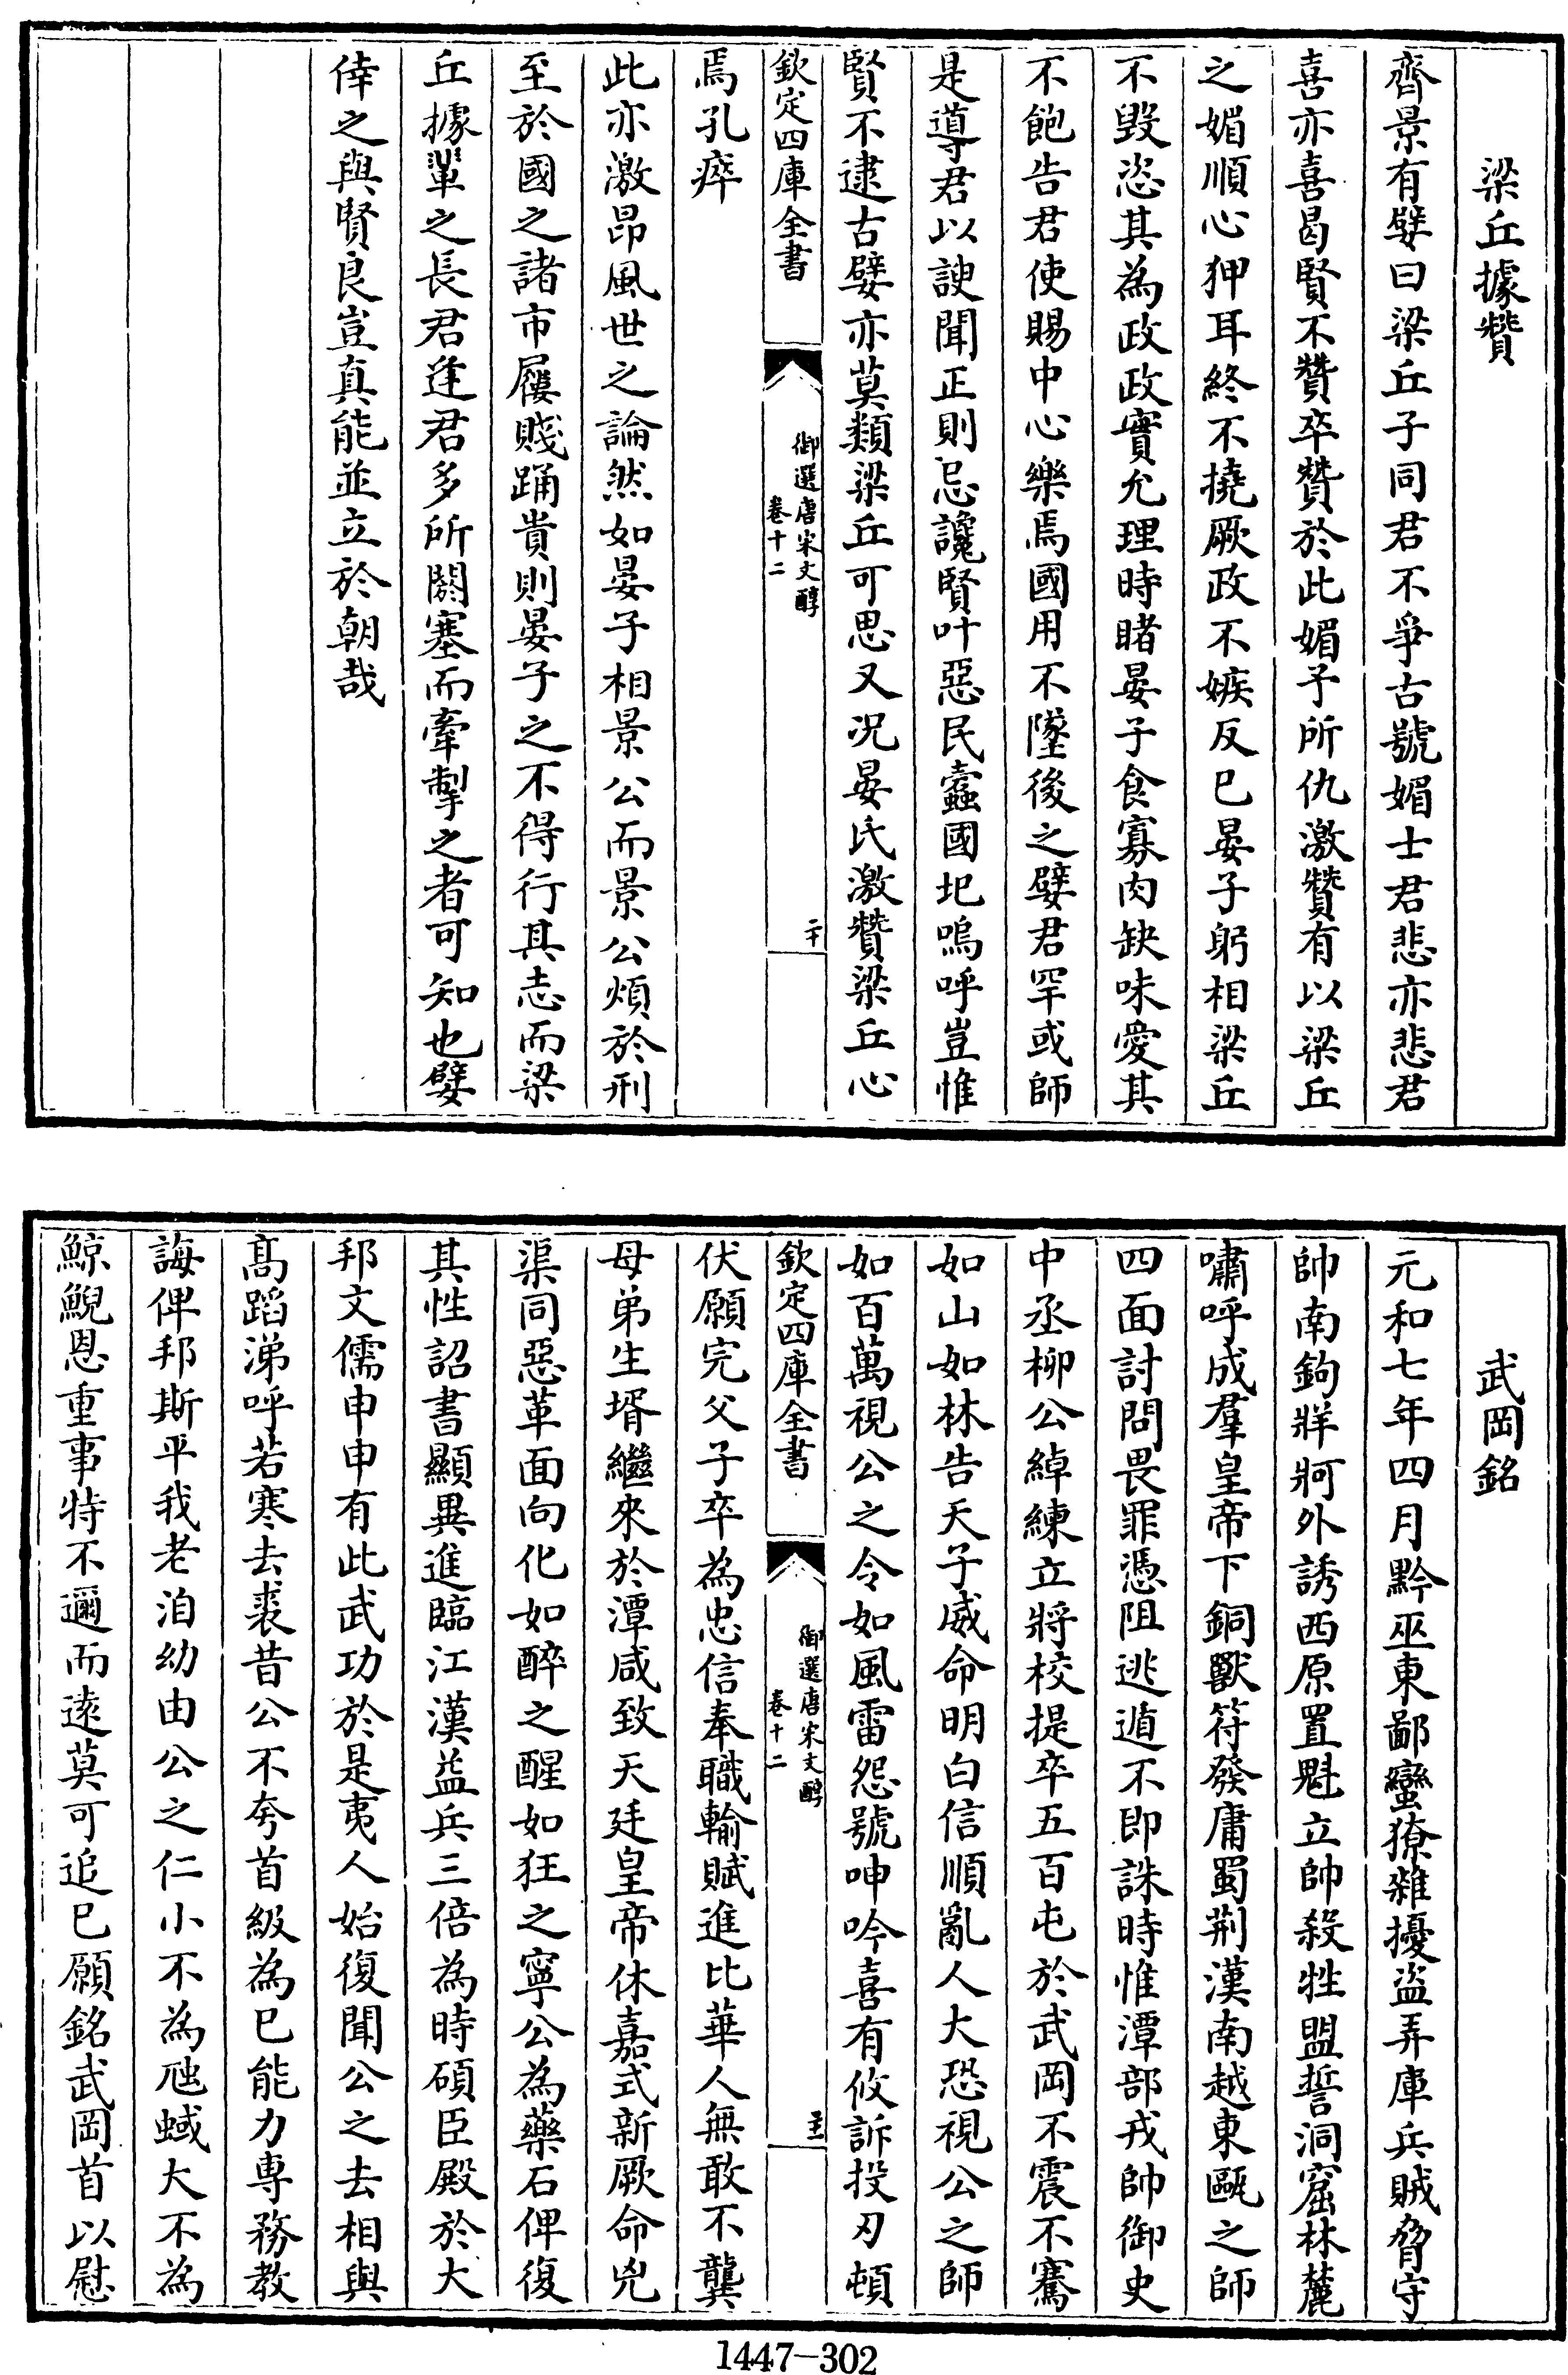 梁丘據贊
齊景有嬖曰梁丘子同君不爭古號媚士君悲亦悲君
喜亦喜曷賢不贊卒贊於此媚予所仇激贊有以梁丘
之媚順心狎耳終不撓厥政不嫉反已晏子躬相梁丘
不毀恣其為政政實允理時睹晏子食寡肉缺味愛其
不飽告君使賜中心樂焉國用不墜後之嬖君罕或師
是導君以諛聞正則忌讒賢叶惡民蠹國圯嗚呼豈惟
賢不逮古嬖亦莫類梁丘可思又況晏氏激贊梁丘心
欽定四庫全書
御選唐宋文醇
卷十二
二十
焉孔瘁
此亦激昂風世之論然如晏子相景公而景公煩於刑
至於國之諸市屨賤踊貴則晏子之不得行其志而梁
丘據輩之長君逢君多所閼塞而牽掣之者可知也嬖
倖之與賢良豈真能並立於朝哉
武岡銘
元和七年四月黔巫東鄙蠻獠雜擾盜弄庫兵賊脅守
帥南鉤牂牁外誘西原置魁立帥殺牲盟誓洞窟林麓
嘯呼成羣皇帝下銅獸符發庸蜀荊漢南越東甌之師
四面討問畏罪憑阻逃遁不即誅時惟潭部戎帥御史
中丞柳公綽練立將校提卒五百屯於武岡不震不騫
如山如林告天子威命明白信順亂人大恐視公之師
如百萬視公之令如風雷怨號呻吟喜有攸訴投刃頓
欽定四庫全書
御選唐宋文醇
卷十二
伏願完父子卒為忠信奉職輸賦進比華人無敢不龔
母弟生壻繼來於潭咸致天廷皇帝休嘉式新厥命兇
渠同惡革面向化如醉之醒如狂之寧公為藥石俾復
其性詔書顯異進臨江漢益兵三倍為時碩臣殿於大
邦文儒申申有此武功於是夷人始復聞公之去相與
髙蹈涕呼若寒去裘昔公不夸首級為已能力專務教
誨俾邦斯平我老洎幼由公之仁小不為虺蜮大不為
鯨鯢恩重事特不邇而逺莫可追已願銘武岡首以慰
1447-302